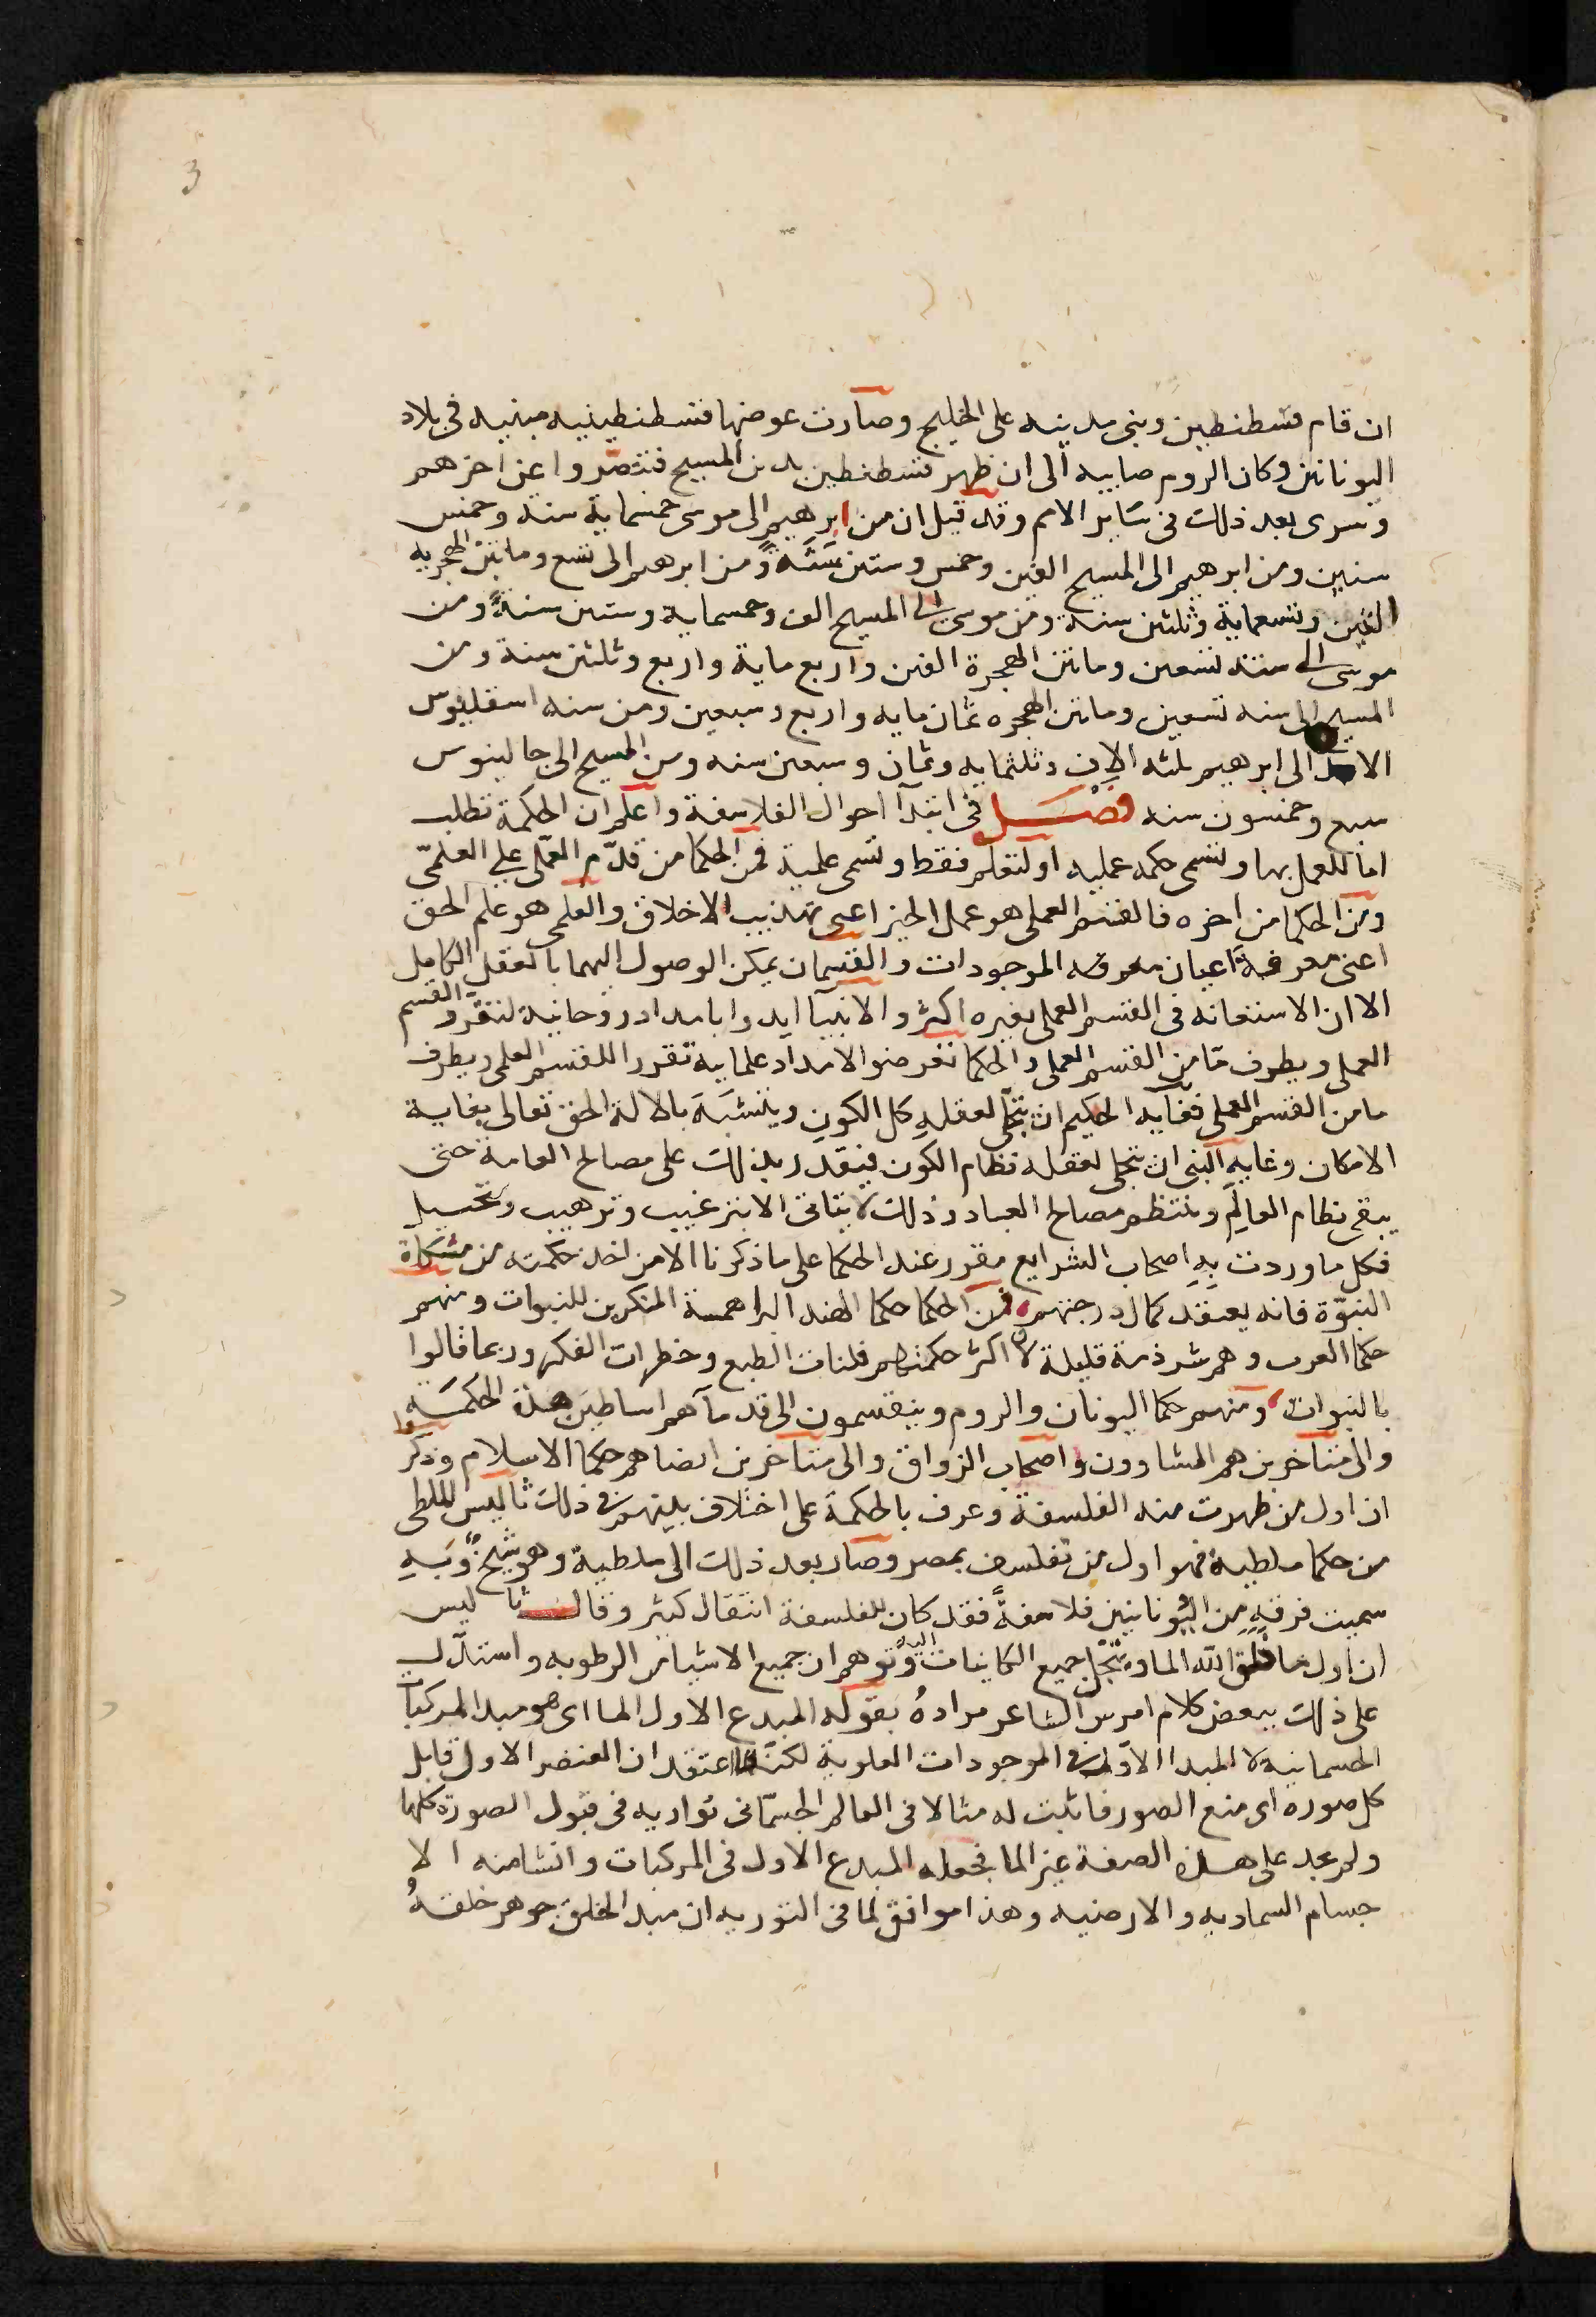 3
ان قام قسطنطين وبنى مدينه على الخليج وصارت عوضها قسطنطينيه مبنيه في بلاد
اليونانين وكان الروم صابيه الى ان ظهر قسطنطين بدين المسيح فتنصروا عن اخرهم
وسرى بعد ذلك في ساير الامم وقد قيل ان من ابرهيم الى موسى خمسماية سنه وخمس
سنين ومن ابرهيم الى المسيح الفين وخمس وستين سنة ومن ابرهيم الى تسع وماتين الهجريه
الفين وتسعماية وثلثين سنة ومن موسى الى المسيح الف وخمسماية وستين سنة ومن
موسى الى سنه تسعين وماتين الهجرة الفين واربع ماية واربع وثلثين سنة ومن
المسيح الى سنه تسعين وماتين الهجره ثمان مايه واربع وسبعين ومن سنه اسقلبيوس
الى ابرهيم ثلثه الاف وثلثمايه وثمان وسبعين سنه ومن المسيح الى جالينوس
سبع وخمسون سنه فصل في ابتدآ احوال الفلاسفة واعلم ان الحكمة تطلب
اما للعمل بها وتسمى حكمه عمليه او لتعلم فقط وتسمى علمية فمن الحكما من قدّم العملى على العلمىّ
ومن الحكما من اخره فالقسم العملى هو عمل الخير اعنى تهذيب الاخلاق والعلمى هو علم الحق
اعنى معرفة اعيان معرفه الموجودات والقسمان يمكن الوصول اليهما بالعقل الكامل
الا ان الاستعانه في القسم العملى بغيره اكثر والانبيآ ايدوا بامداد روحانية لتقرر القسم
العملى وبطرف ما من القسم العملى والحكما تعرضوا لامداد علمايه تقررا للقسم العلمى وبطرف
ما من القسم العملى فغاية الحكيم ان يتجلّى لعقلهِ كل الكون ويتشبّه بالالة الحق تعالى بغاية
الامكان وغاية النبى ان يتجلى لعقله نظام الكون فيقدر بذلك على مصالح العامة حتى
يبقى نظام العالم وتنتظم مصالح العباد وذلك لا يتاتى الا بترغيب وترهيب وتخييل
فكل ما وردت به اصحاب الشرايع مقرر عند الحكما على ما ذكرنا الا من اخذ حكمته من مشكاة
النبوّة فانه يعتقد كمال درجتهم فمن الحكما حكما الهند البراهمة المنكرين للنبوات ومنهم
حكما العرب وهم شرذمة قليلة لان اكثر حكمتهم فلتات الطبع وخطرات الفكر وربما قالوا
بالنبوات ومنهم حكما اليونان والروم وينقسمون الى قدمآ هم اساطين هذه الحكمة
والى متاخرين هم المشاوون واصحاب الرواق والى متاخرين ايضا هم حكما الاسلام وذكروا
ان اول من ظهرت منه الفلسفة وعرف بالحكمة على اختلاف بينهم في ذلك ثاليس الملطى
من حكما ملطية فهو اول من تفلسف بمصر وصار بعد ذلك الى ملطية وهو شيخ وبهِ
سميت فرقه من اليونانيين فلاسفةً فقد كان للفلسفة انتقال كثير وقال ثاليس
ان اول ما خلق الله الما وينحل جميع الكاينات اليه وتوهم ان جميع الاشيا من الرطوبه واستدل
على ذلك ببعض كلام امرس الشاعر مرادهُ بقوله المبدع الاول الما اى هو مبدا المركبات
الجسمانيه لا المبدا الاول في الموجودات العلوية لكنه اعتقد ان العنصر الاول قابل
كل صوره اى منبع الصور فاثبت له مثالا في العالم الجسمانى توازيه في قبول الصورة كلها
ولم يجد على هذه الصفة غير الما فجعله المبدع الاول في المركبات وانشا منه الا
جسام السماويه والارضيه وهذا موافق لما في التوريه ان مبدا الخلق جوهر خلقهُ